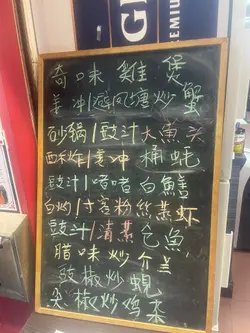 奇味雞煲
姜冲/避風塘炒蟹
砂鍋/豉汁大魚头
酥炸/姜冲桶蚝
豉汁/啫啫白鱔
白灼/粉丝蒸虾
豉汁/清蒸仓魚
腊味炒介兰
豉椒炒蜆
尖椒炒鸡杂